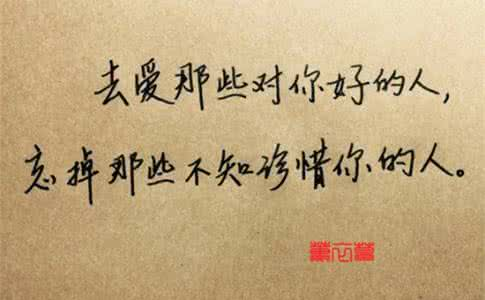 去爱那些对你好的人,
忘掉那些不知珍惜你的人。